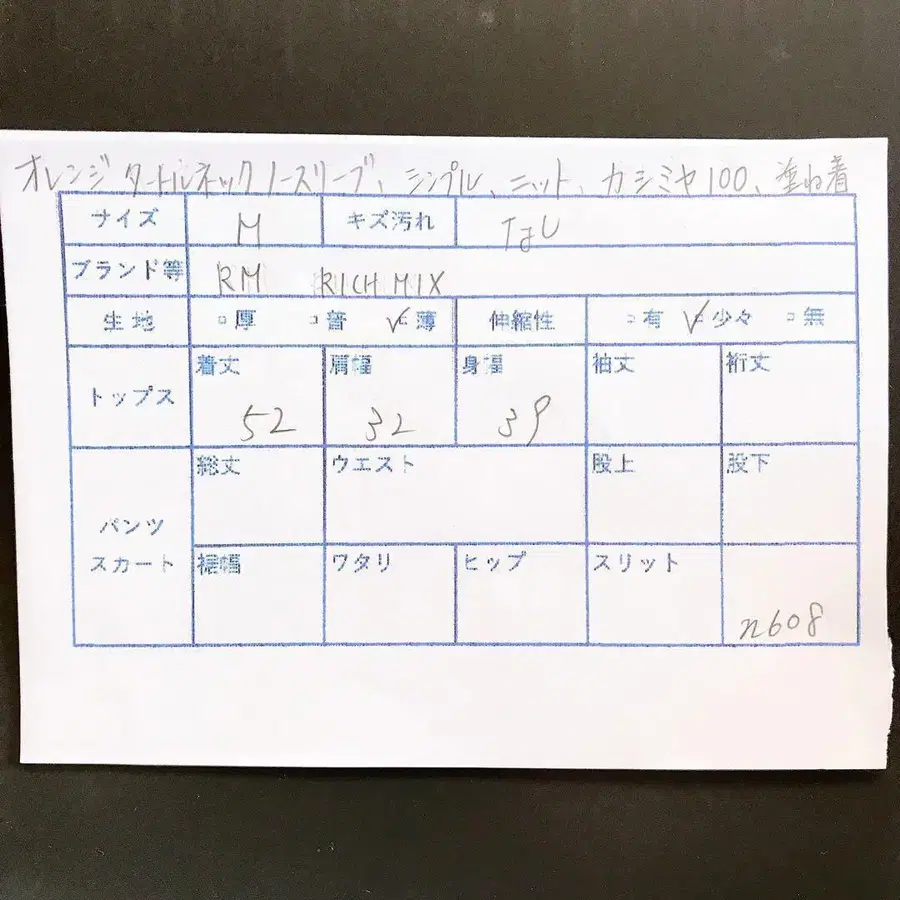 オレンジ タートルネック ノースリーブ、シンプル、ニット、カシミヤ100、重ね着
サイズ M キズ汚れ なし
ブランド等 RM RICH MIX
生地 □厚 □普 ✓薄 伸縮性 □有 ✓少々 □無
トップス 着丈 52 肩幅 32 身幅 39 袖丈 裄丈
パンツ スカート 総丈 ウエスト 股上 股下
裾幅 ワタリ ヒップ スリット
n608